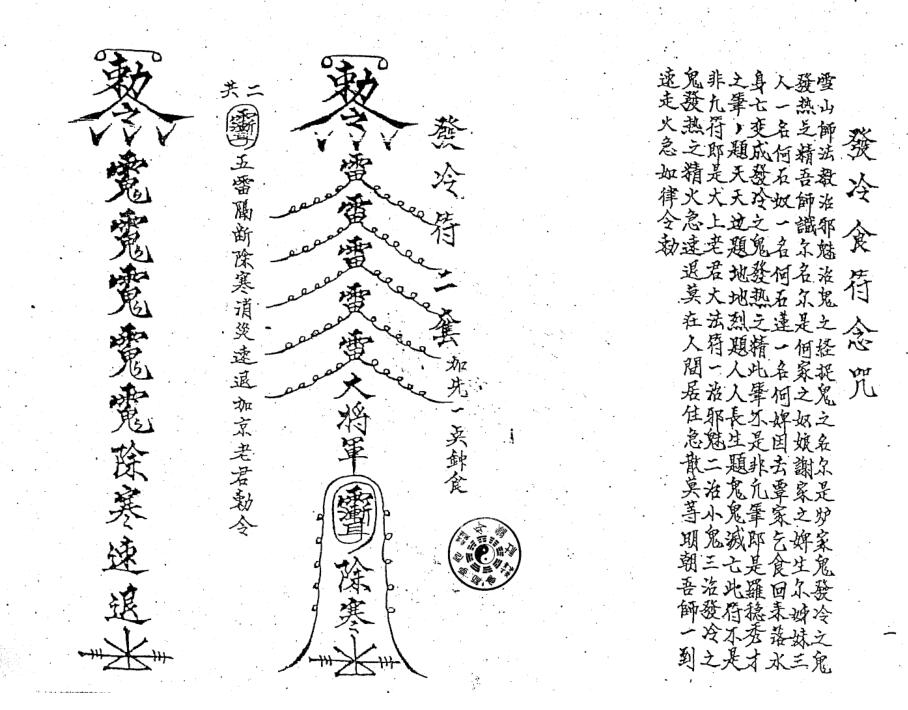 發冷食符念咒
雪山師法教治邪魅治鬼之经捉鬼之名尔是妒家鬼發冷之鬼
發热之精吾師識尔名尔是何家之奴娘謝家之婢生尔姊妹三
人一名何石奴一名何石莲一名何婢因去覃家乞食回来落水
身亡变成發冷之鬼發热之精此筆不是非凡筆郎是羅穏秀才
之筆題天天边題地地烈題人人長生題鬼鬼滅亡此符不是
非凡符郎是大上老君大法符一治邪魅二治小鬼三治發冷之
鬼發热之精火急速退莫在人間居住急散莫等明朝吾師一到
速走火急如律令勑
一
發冷符二套
加先一点
食
勅令雷雷雷雷雷大將軍
除寒
共二
五雷隔断除寒消災遠退加京老君勅令
勅令
除寒速退